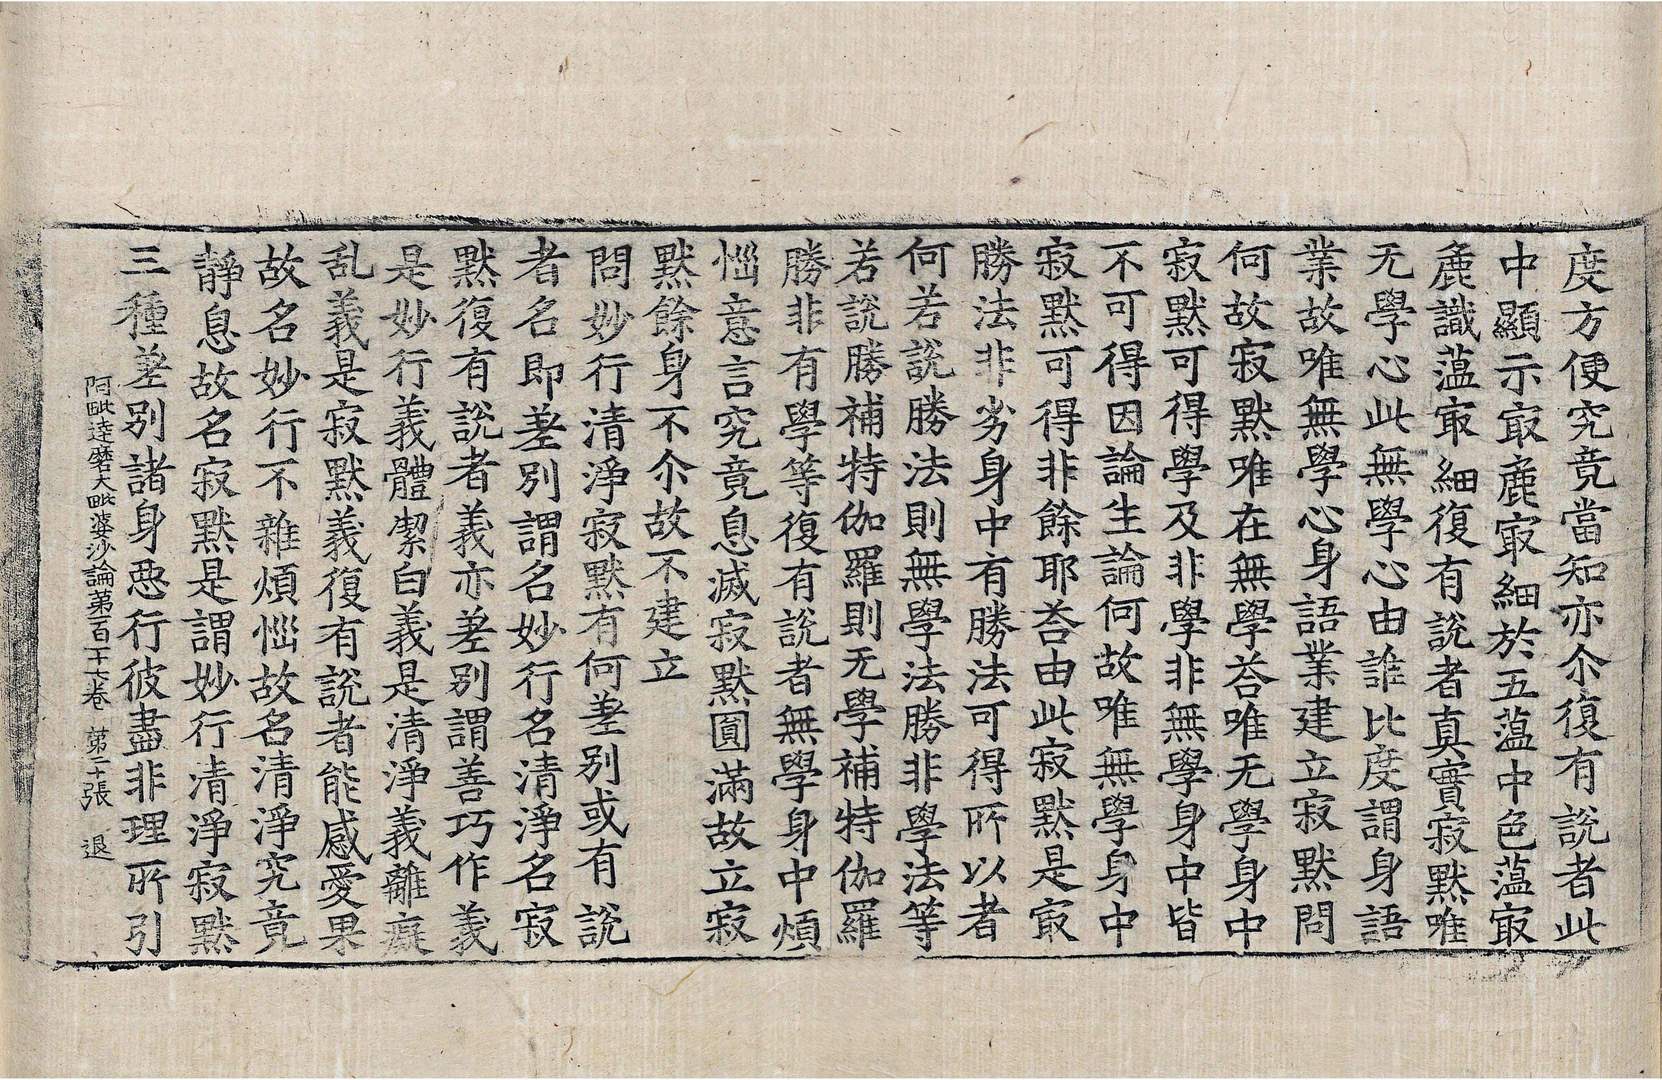 度方便究竟當知亦尒復有說者此
中顯示㝡麁㝡細於五蘊中色蘊㝡
麁識蘊㝡細復有說者真實寂默唯
无學心此無學心由誰比度謂身語
業故唯無學心身語業建立寂默問
何故寂默唯在無學荅唯无學身中
寂默可得學及非學非無學身中皆
不可得因論生論何故唯無學身中
寂默可得非餘耶荅由此寂默是㝡
勝法非劣身中有勝法可得所以者
何若說勝法則無學法勝非學法等
若說勝補特伽羅則无學補特伽羅
勝非有學等復有說者無學身中煩
惱意言究竟息滅寂默圓滿故立寂
默餘身不尒故不建立
問妙行清淨寂默有何差別或有說
者名即差別謂名妙行名清淨名寂
默復有說者義亦差別謂善巧作義
是妙行義體潔白義是清淨義離癡
乱義是寂默義復有說者能感愛果
故名妙行不雜煩惱故名清淨究竟
靜息故名寂默是謂妙行清淨寂默
三種差別諸身惡行彼盡非理所引
阿毗達磨大毗婆沙論第一百一十七卷 第二十張 退